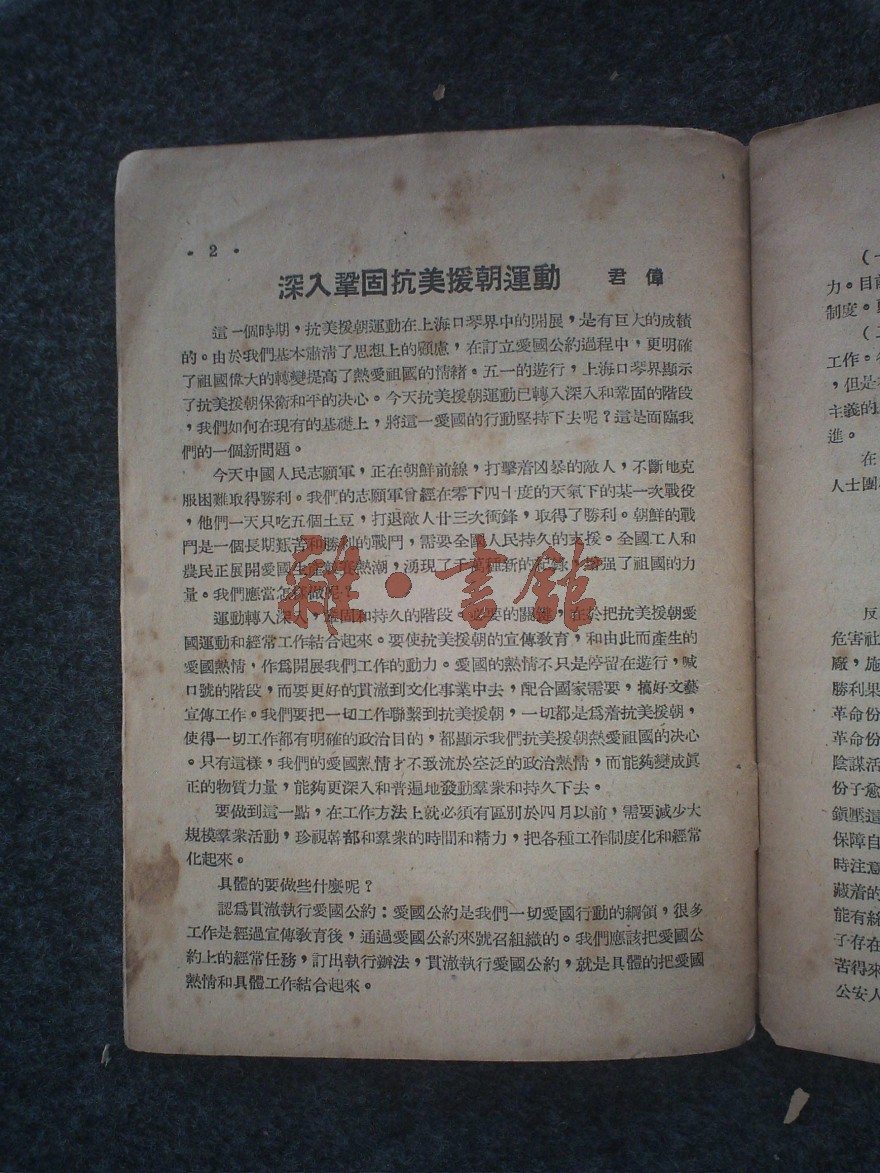 · 2 ·
深入鞏固抗美援朝運動 君偉
這一個時期，抗美援朝運動在上海口琴界中的開展，是有巨大的成績
的。由於我們基本肅清了思想上的顧慮，在訂立愛國公約過程中，更明確
了祖國偉大的轉變提高了熱愛祖國的情緒。五一的遊行，上海口琴界顯示
了抗美援朝保衛和平的決心。今天抗美援朝運動已轉入深入和鞏固的階段
，我們如何在現有的基礎上，將這一愛國的行動堅持下去呢？這是面臨我
們的一個新問題。
今天中國人民志願軍，正在朝鮮前線，打擊着凶暴的敵人，不斷地克
服困難取得勝利。我們的志願軍曾經在零下四十度的天氣下的某一次戰役
，他們一天只吃五個土豆，打退敵人廿三次衝鋒，取得了勝利。朝鮮的戰
鬥是一個長期艱苦和勝利的戰鬥，需要全國人民持久的支援。全國工人和
農民正展開愛國生產競賽熱潮，湧現了千萬種新的紀錄，增强了祖國的力
量。我們應當怎樣做呢？
運動轉入深入，鞏固和持久的階段。必要的關鍵，在於把抗美援朝愛
國運動和經常工作結合起來。要使抗美援朝的宣傳敎育，和由此而產生的
愛國熱情，作爲開展我們工作的動力。愛國的熱情不只是停留在遊行，喊
口號的階段，而要更好的貫澈到文化事業中去，配合國家需要，搞好文藝
宣傳工作。我們要把一切工作聯繫到抗美援朝，一切都是爲着抗美援朝，
使得一切工作都有明確的政治目的，都顯示我們抗美援朝熱愛祖國的決心
。只有這樣，我們的愛國熱情才不致流於空泛的政治熱情，而能夠變成眞
正的物質力量，能夠更深入和普遍地發動羣衆和持久下去。
要做到這一點，在工作方法上就必須有區別於四月以前，需要減少大
規模羣衆活動，珍視幹部和羣衆的時間和精力，把各種工作制度化和經常
化起來。
具體的要做些什麼呢？
認爲貫澈執行愛國公約：愛國公約是我們一切愛國行動的綱領，很多
工作是經過宣傳敎育後，通過愛國公約來號召組織的。我們應該把愛國公
約上的經常任務，訂出執行辦法，貫澈執行愛國公約，就是具體的把愛國
熱情和具體工作結合起來。
雜·書館
（一
力。目前
制度。
工作。
，但是
主義的
進。
在
人士團
反
危害社
廠，施
勝利果
革命份
革命份
陰謀活
份子愈
鎭壓這
保障自
時注意
藏着的
能有絲
子存在
苦得來
公安人